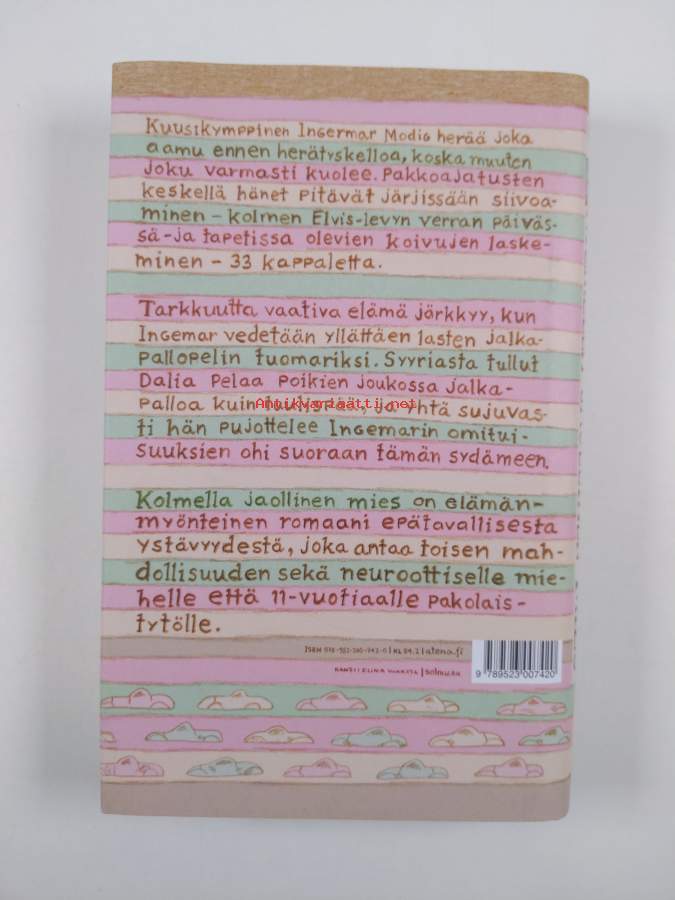 Kuusikymppinen Ingermar Modig herää joka
aamu ennen herätyskelloa, koska muuten
joku varmasti kuolee. Pakkoajatusten
keskellä hänet pitävät järjissään siivoa-
minen – kolmen Elvis-levyn verran päiväs-
sä – ja tapetissa olevien koivujen laske-
minen – 33 kappaletta.
Tarkkuutta vaativa elämä järkkyy, kun
Ingemar vedetään yllättäen lasten jalka-
pallopelin tuomariksi. Syyriasta tullut
Dalia pelaa poikien joukossa jalka-
palloa kuin yhtä sujuvas-
Antikvariaatti.net
ti hän pujottelee Ingemarin omitui-
suuksien ohi suoraan tämän sydämeen.
Kolmella jaollinen mies on elämän-
myönteinen romaani epätavallisesta
ystävyydestä, joka antaa toisen mah-
dollisuuden sekä neuroottiselle mie-
helle että 11-vuotiaalle pakolais-
tytölle.
ISBN 978-952-300-742-0 | KL 84.2 | atena.fi
KANSI ELINA WARSTA
9 789523 007420